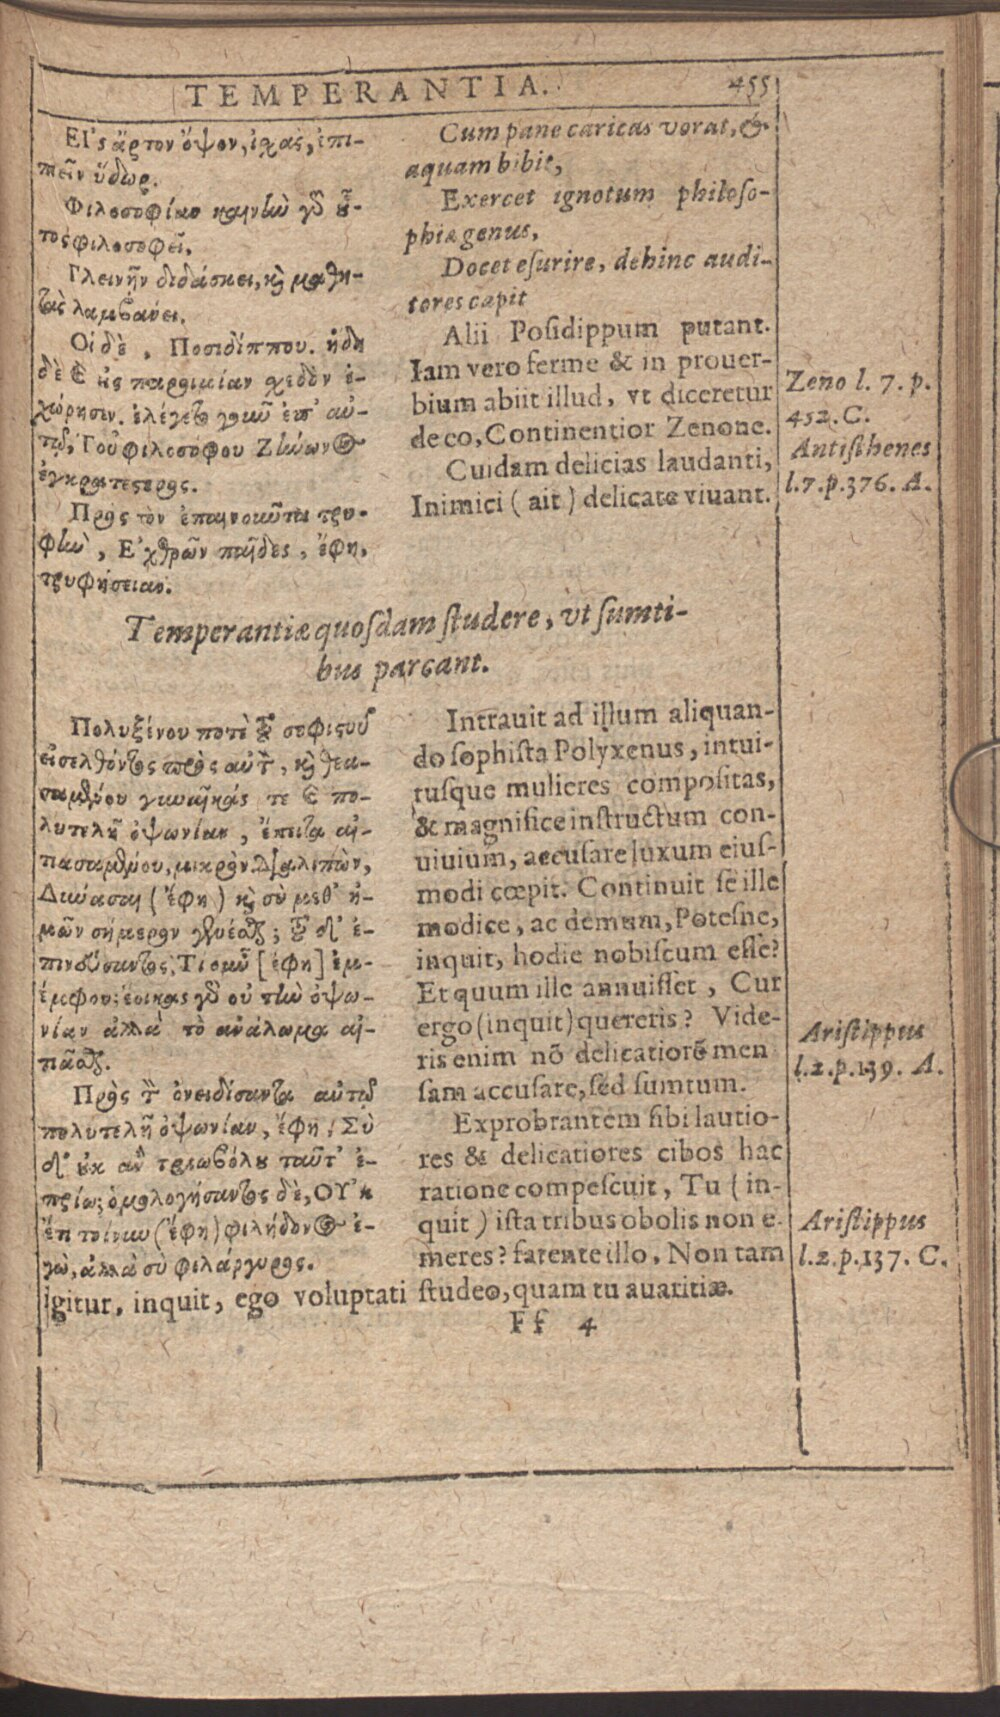 TEMPERANTIA. 455
Εἷς ἄρτον ὄψον, ἰχὰς, ἐπι-
πιεῖν ὕδωρ.
Φιλοσοφίαν καινὴν γὸ οὗ-
τος φιλοσοφεῖ.
Πεινῆν διδάσκει, καὶ μαθη-
τὰς λαμβάνει.
Οἱ δὲ, Ποσιδίππου. ἤδη
δὲ καὶ εἰς παροιμίαν χεδὸν ἐ-
χώρησιν. ἐλέγετο γοῦν ἐπ' αὐ-
τοῦ, Τοῦ φιλοσόφου Ζήνωνος
ἐγκρατέστερος.
Πρὸς τὸν ἐπαινοῦντα τρυ-
φὴν, Ἐχθρῶν παῖδες, ἔφη,
τρυφήσειαν.
Cum pane caricas vorat, &
aquam bibit,
Exercet ignotum philoſo-
phiæ genus,
Docet eſurire, dehinc audi-
tores capit
Alii Poſidippum putant.
Iam vero ferme & in prouer-
bium abiit illud, vt diceretur
de eo, Continentior Zenone.
Cuidam delicias laudanti,
Inimici (ait) delicate viuant.
Zeno l. 7. p.
452. C.
Antiſthenes
l. 7. p. 376. A.
Temperantiæ quoſdam ſtudere, vt ſumti-
bus parcant.
Πολυξένου ποτὲ τοῦ σοφιστοῦ
εἰσελθόντος πρὸς αὐτὸν, καὶ θεα-
σαμένου γυναῖκάς τε καὶ πο-
λυτελῆ ὀψωνίαν, ἔπειτα αἰ-
τιασαμένου, μικρὸν διαλιπὼν,
Δύνασαι (ἔφη) καὶ σὺ μεθ' ἡ-
μῶν σήμερον γενέσθαι; τοῦ δ' ἐ-
πινεύσαντος, Τί οὖν [ἔφη] ἐμ-
έμφου; ἔοικας γὸ οὐ τὴν ὀψω-
νίαν ἀλλὰ τὸ ἀνάλωμα αἰ-
τιᾶσθαι.
Πρὸς τὸν ὀνειδίσαντα αὐτῷ
πολυτελῆ ὀψωνίαν, ἔφη, Σὺ
δ' οὐκ ἂν τριωβόλου ταῦτ' ἐ-
πρίω; ὁμολογήσαντος δὲ, ΟΥ'κ
ἔτι τοίνυν (ἔφη) φιλήδονος ἐ-
γὼ, ἀλλὰ σὺ φιλάργυρος.
Intrauit ad illum aliquan-
do ſophiſta Polyxenus, intui-
tuſque mulieres compoſitas,
& magnifice inſtructum con-
uiuium, accuſare luxum eiuſ-
modi cœpit. Continuit ſe ille
modice, ac demum, Poteſne,
inquit, hodie nobiſcum eſſe?
Et quum ille annuiſſet, Cur
ergo (inquit) quereris? Vide-
ris enim nō delicatiorē men
ſam accuſare, ſed ſumtum.
Exprobrantem ſibi lautio-
res & delicatiores cibos hac
ratione compeſcuit, Tu (in-
quit) iſta tribus obolis non e-
meres? fatente illo, Non tam
igitur, inquit, ego voluptati ſtudeo, quam tu auaritiæ.
Ariſtippus
l. 2. p. 139. A.
Ariſtippus
l. 2. p. 137. C.
Ff 4